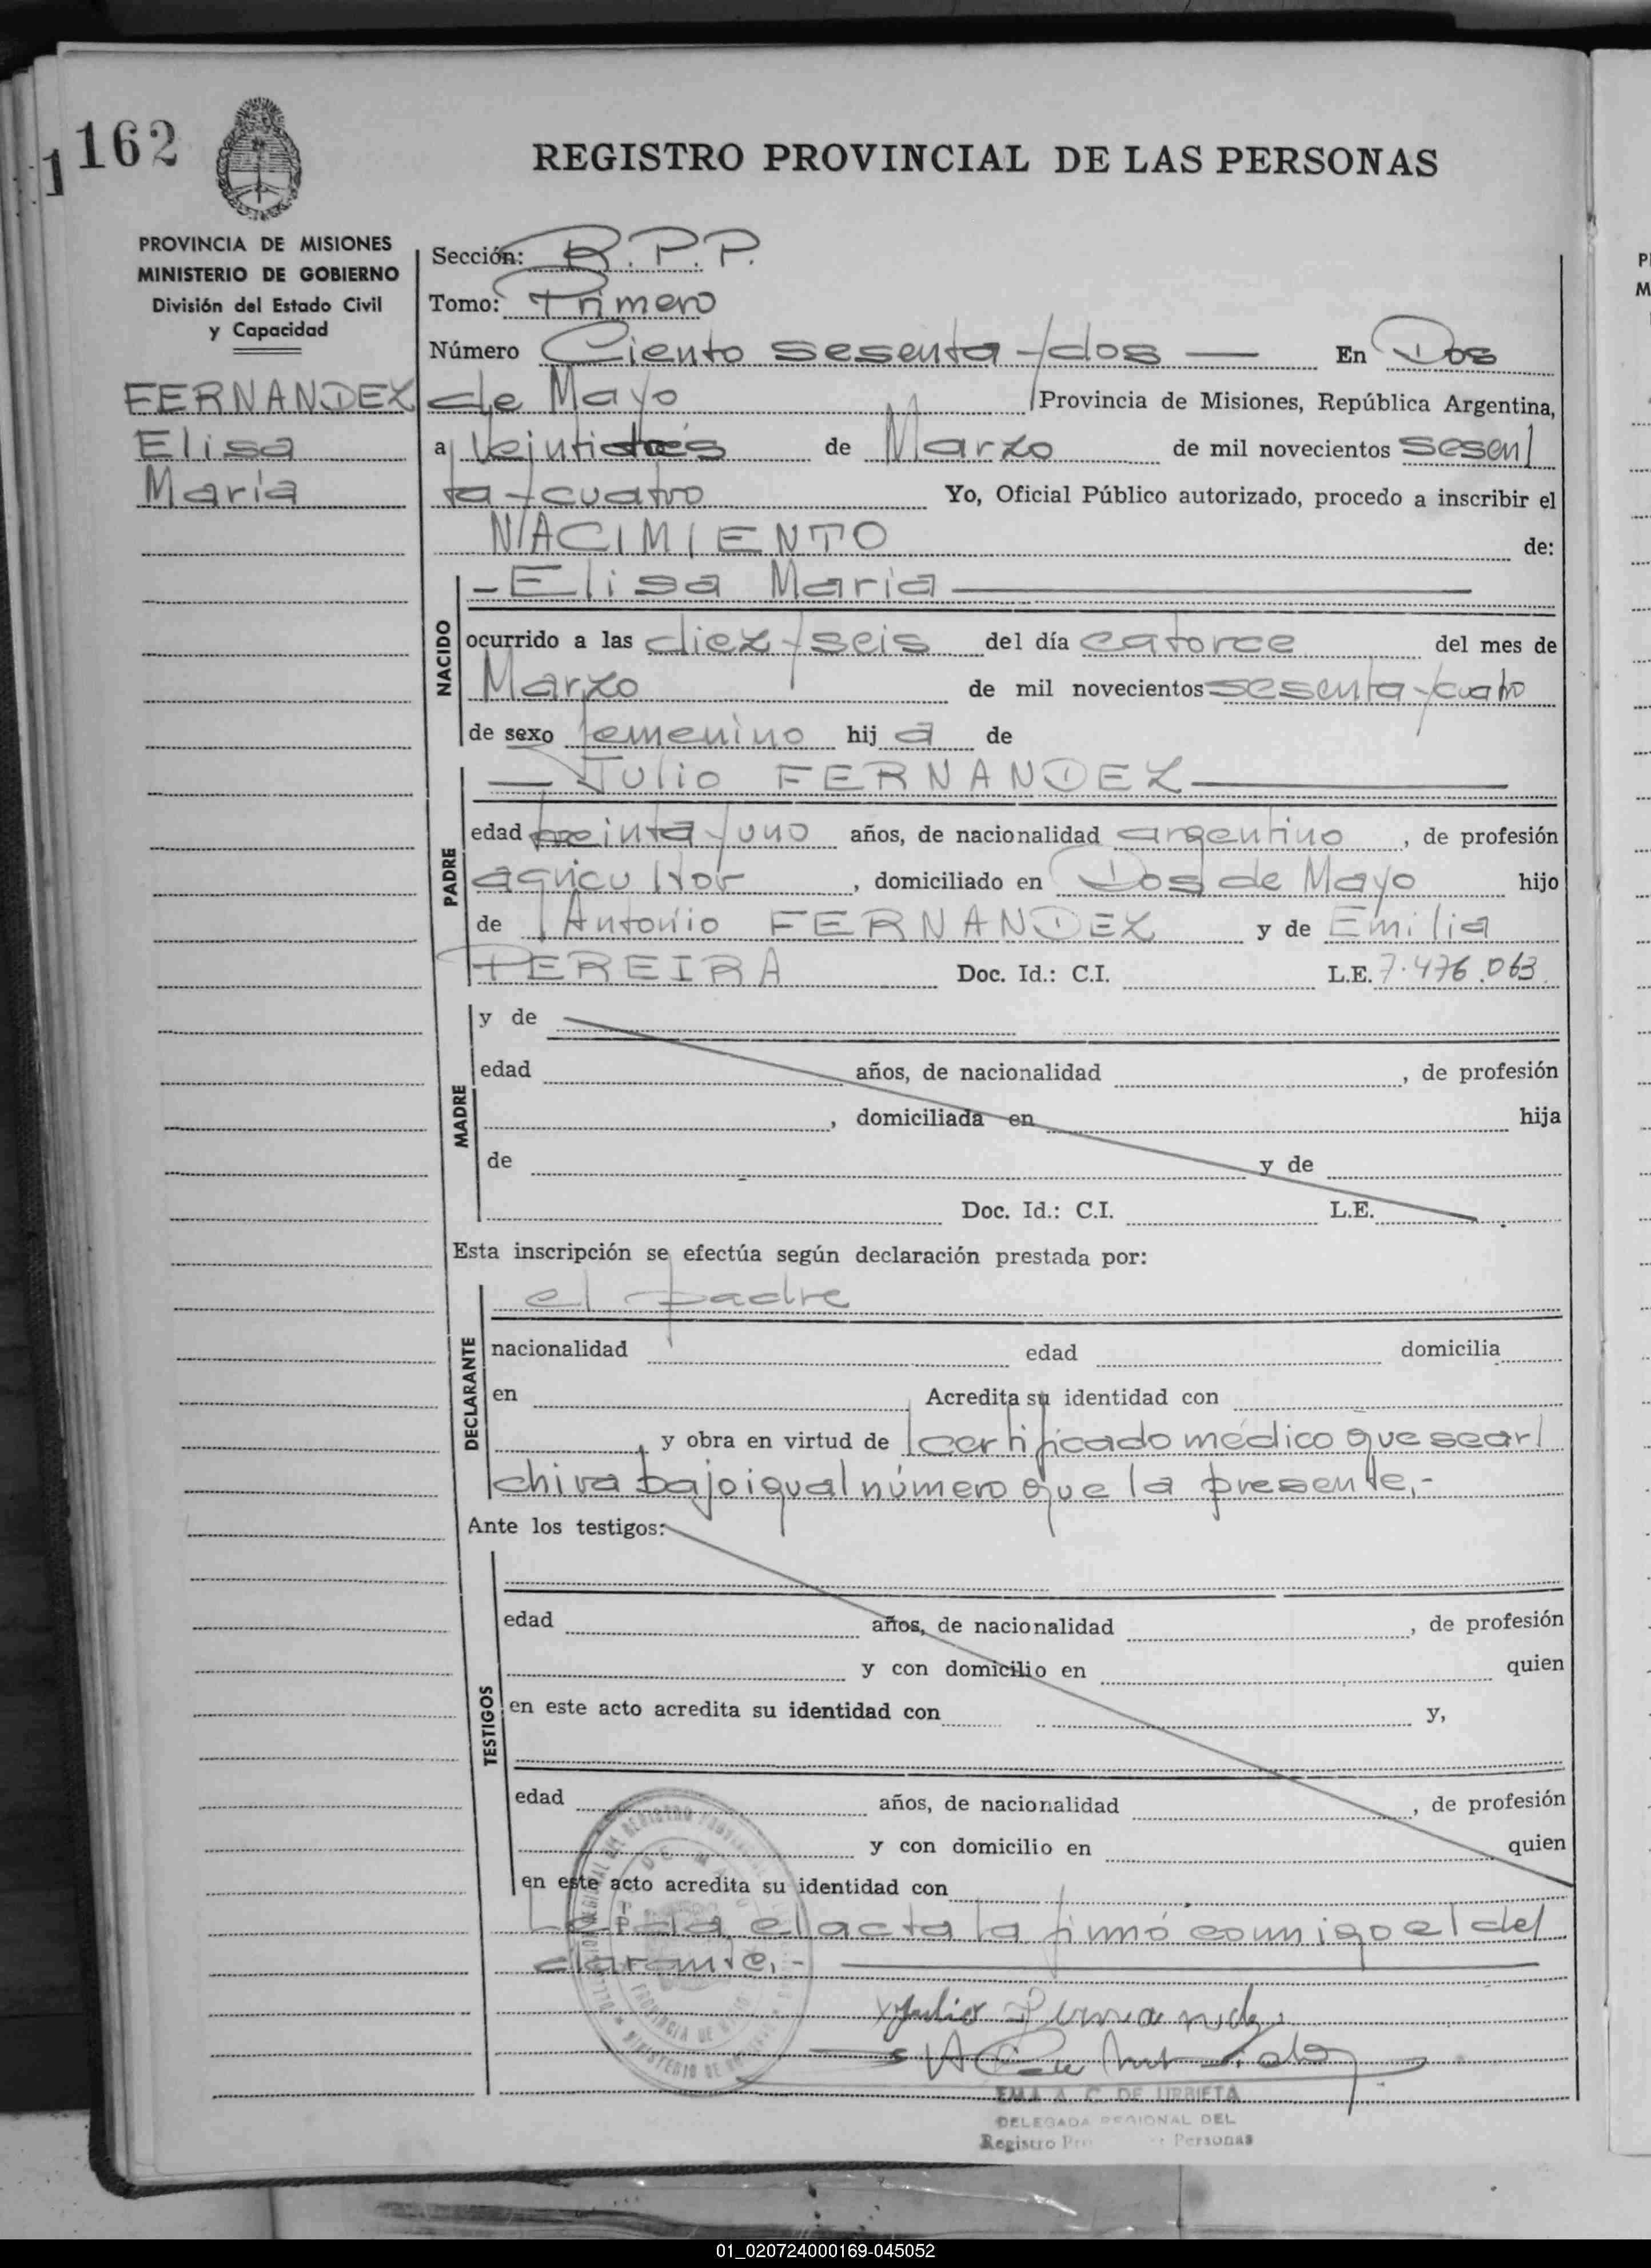 1162
REGISTRO PROVINCIAL DE LAS PERSONAS
PROVINCIA DE MISIONES
MINISTERIO DE GOBIERNO
División del Estado Civil
y Capacidad
FERNANDEZ
Elisa
María
Sección: R.P.P.
Tomo: Primero
Número Ciento sesenta y dos — En Dos
de Mayo Provincia de Misiones, República Argentina,
a de Marzo de mil novecientos sesen
ta y cuatro Yo, Oficial Público autorizado, procedo a inscribir el
NACIMIENTO de:
NACIDO
- Elisa María
ocurrido a las diez y seis del día catorce del mes de
Marzo de mil novecientos sesenta y cuatro
de sexo femenino hija de
PADRE
Julio FERNANDEZ
edad treinta y uno años, de nacionalidad argentino, de profesión
agricultor, domiciliado en Dos de Mayo hijo
de Antonio FERNANDEZ y de Emilia
PEREIRA Doc. Id.: C.I. L.E. 7.476.063
MADRE
y de
edad años, de nacionalidad , de profesión
, domiciliada en hija
de y de
Doc. Id.: C.I. L.E.
Esta inscripción se efectúa según declaración prestada por:
DECLARANTE
el padre
nacionalidad edad domicilia
en Acredita su identidad con
, y obra en virtud de certificado médico que se ar
chiva bajo igual número que la presente.-
Ante los testigos:
TESTIGOS
edad años, de nacionalidad , de profesión
y con domicilio en quien
en este acto acredita su identidad con y,
edad años, de nacionalidad , de profesión
y con domicilio en quien
en este acto acredita su identidad con
Leída el acta la firmó conmigo el de
clarante.-
x Julio Fernandez
EMA A. C. DE URBIETA
DELEGADA REGIONAL DEL
Registro Personas
01_020724000169-045052